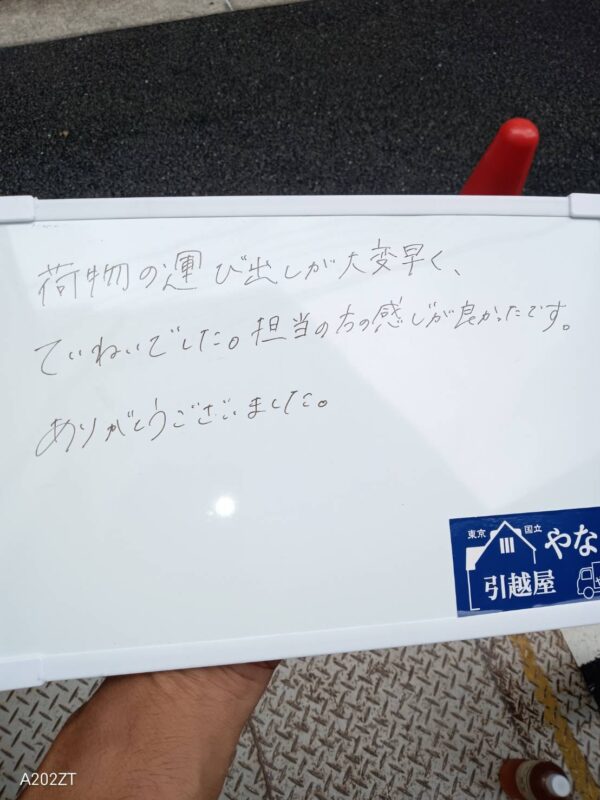 荷物の運び出しが大変早く、
ていねいでした。担当の方の感じが良かったです。
ありがとうございました。
東京 国立 やな
引越屋
A202ZT